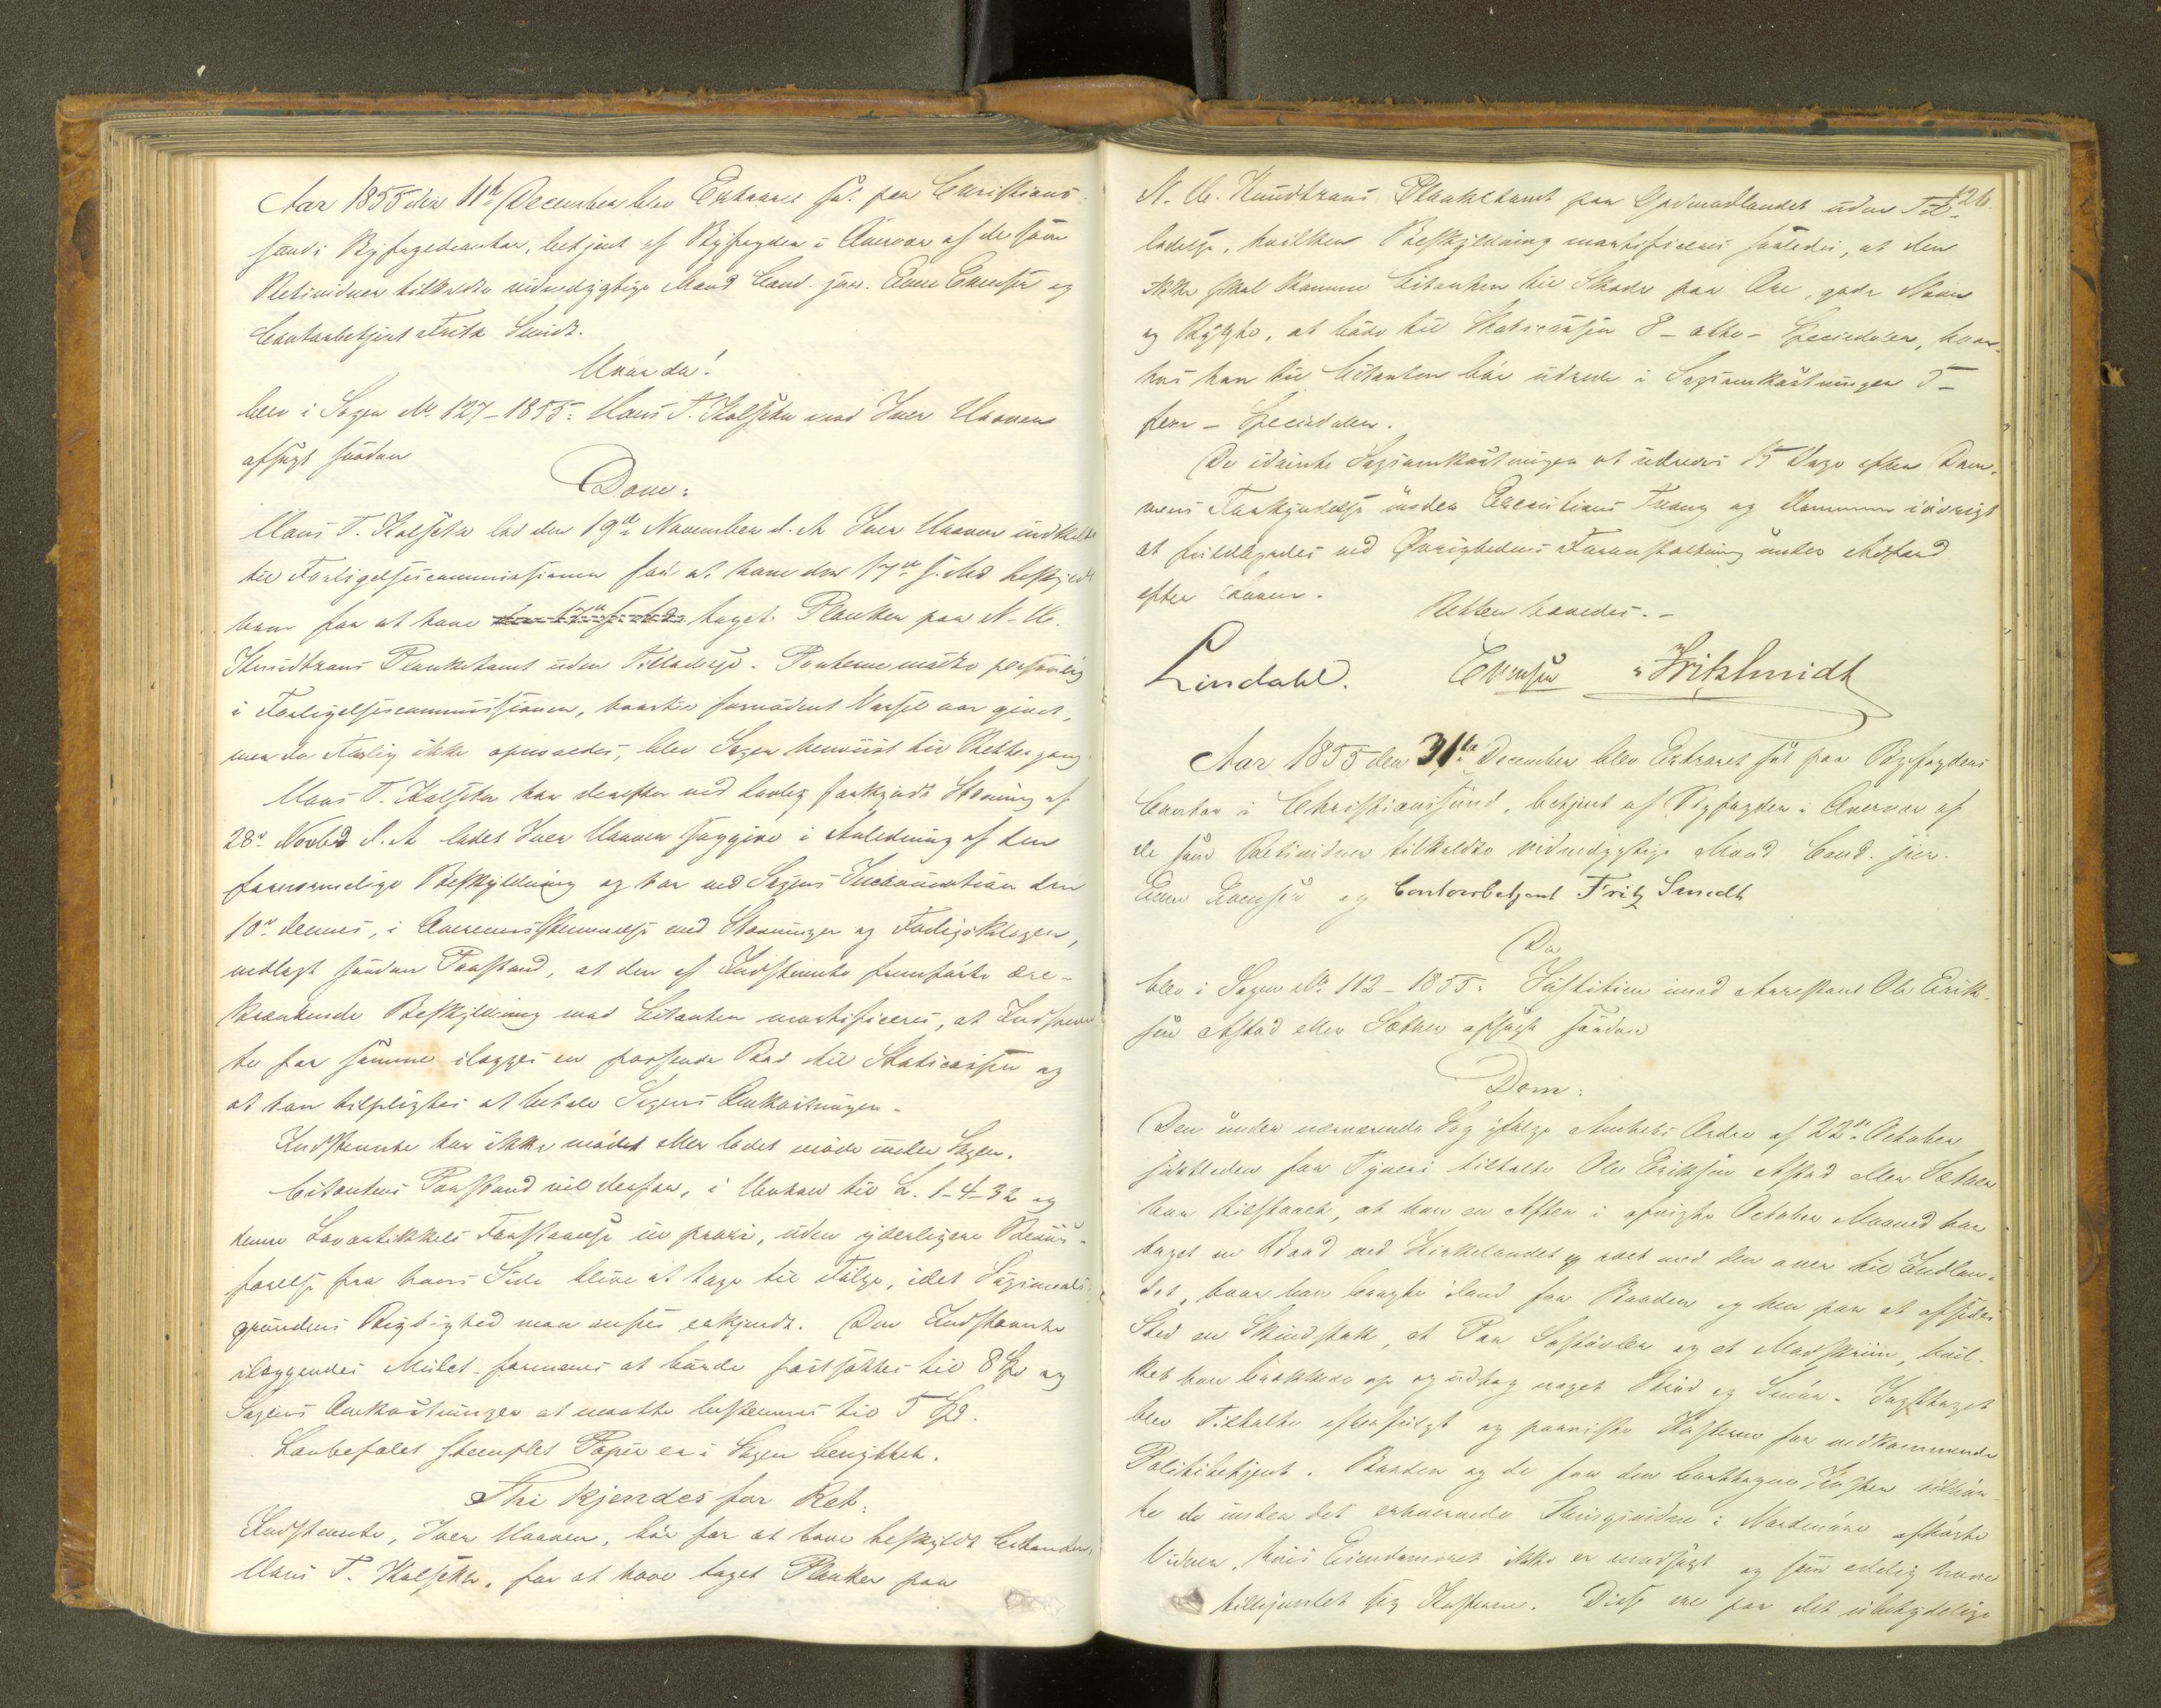 Aar 1855 den 11te December blev Extraret sat paa Christian-
sunds Byfogedcontor, betjent af Byfogden i Overvær af de som
Retsvidner tilkaldte vidnedygtige Mænd Cand. jur. Evensen og
Contorbetjent Fritz Smidt.
Hvor da!
blev i Sagen No. 127-1855: Hans T. Kalseth mod Iver Haaven
afsagt saadan
Dom:
Hans T. Kalseth lod den 19de November d. A. Iver Haaven indkalde
til Forligelsescommissionen for at have den 17de s. Md beskyldt
ham for at have den 17de s. Md taget Planker paa N. H.
Knudtzons Planketomt uden Tilladelse. Parterne mødte personlig
i Forligelsescommissionen, hvortil fornødent Varsel var givet,
men da Forlig ikke opnaaedes, blev Sagen henviist til Rettergang.
Hans T. Kalseth har derefter ved lovlig forkyndt Stevning af
28de Novbr d. A. ladet Iver Haaven saggive i Anledning af den
fornærmelige Beskyldning og har ved Sagens Incamination den
10de dennes, i Overensstemmelse med Stevningen og Forligsklagen,
nedlagt saadan Paastand, at den af Indstevnte fremførte ære-
krænkende Beskyldning mod Citanten mortificeres, at Indstevn-
te for samme ilægges en passende Bod til Statscassen og
at han tilpligtes at betale Sagens Omkostninger.
Indstevnte har ikke mødet eller ladet møde under Sagen.
Citantens Paastand vil derfor, i Henhold til L. 1-4-32 og
denne Lovartikkels Forstaaelse in praxi, uden yderligere Beviis-
førelse fra hans Side blive at tage til Følge, idet Søgsmaals-
grundens Rigtighed maa ansees erkjendt. Den Indstevnte
ilæggendes Mulct formenes at burde fastsættes til 8 Spd og
Sagens Omkostninger at maatte bestemmes til 5 Spd.
Lovbefalet stemplet Papir er i Sagen benyttet.
Thi kjendes for Ret:
Indstevnte, Iver Haaven, bør for at have beskyldt Citanten,
Hans T. Kalseth, for at have taget Planker paa
126.
N. H. Knudtzons Planketomt paa Gomalandet uden Til-
ladelse, hvilken Beskyldning mortificeres saaledes, at den
ikke skal komme Citanten til Skade paa Ære, gode Navn
og Rygte, at bøde til Statscassen 8 - otte - Speciedaler, hvor-
hos han til Citanten bør udrede i Sagsomkostninger 5 -
fem - Speciedaler.
De idømte Sagsomkostninger at udredes 15 Dage efter Dom-
mens Forkyndelse under Executions Tvang og Dommen iøvrigt
at fuldbyrdes ved Øvrighedens Foranstaltning under Adfærd
efter Loven.
Retten hævedes. -
Lindahl. Evensen Fritz Smidt
Aar 1855 den 31te December blev Extraret sat paa Byfogdens
Contor i Christianssund, betjent af Byfogden i Overvær af
de som Retsvidner tilkaldte vidnedygtige Mænd Cand. jur.
Evensen og Contorbetjent Fritz Smidt
Da
blev i Sagen No 112-1855: Justitien imod Arrestant Ole Erik-
sen Astad eller Sæther afsagt saadan
Dom:
Den under nærværende Sag ifølge Amtets Ordre af 22de October
sidstleden for Tyveri tiltalte Ole Eriksen Astad eller Sæther
har tilstaaet, at han en Aften i afvigte October Maaned har
taget en Baad ved Kirkelandet og roet med den over til Indlan-
det, hvor han bragte iland fra Baaden og hen paa et afsides
Sted en Skindstak, et Par Søstøvler og et Madskriin, hvil-
ket han brækkede op og udtog noget Brød og Smør. Sagttaget
blev Tiltalte efterfulgt og paaviste Kosterne for vedkommende
Politibetjent. Baaden og de fra den borttagne Koster tilhør-
te de under det erhvervede Thingsvidne i Nordmøre afhørte
Vidner, hvis Eiendomsret ikke er modsagt og som edelig have
tilhjemlet sig Kosterne. Disse ere paa det ubetydelige